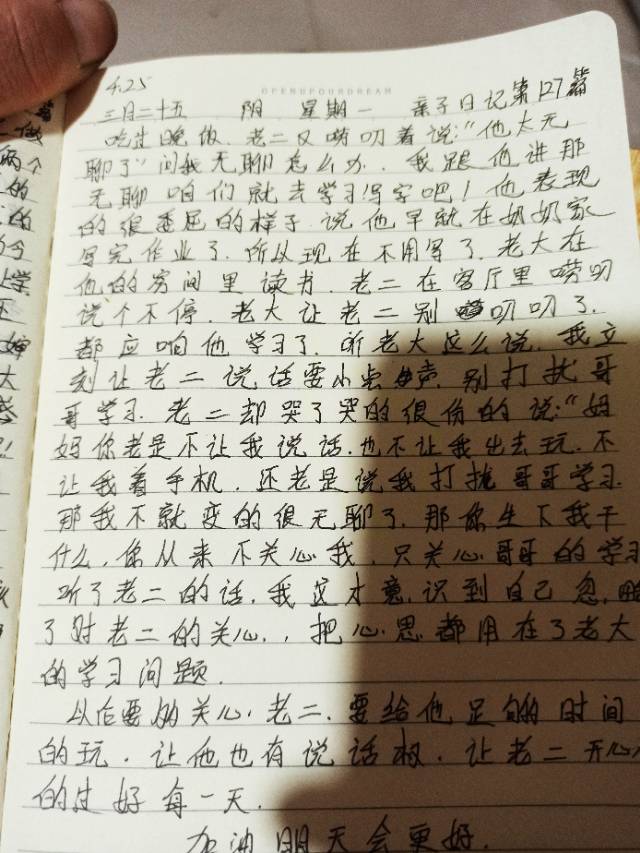 4.25
OPENUPYOURDREAM
三月二十五 阴 星期一 亲子日记第127篇
吃过晚饭.老二又唠叨着说:"他太无
聊了"问我无聊怎么办.我跟他讲那
无聊咱们就去学习写字吧!他表现
的很委屈的样子.说他早就在奶奶家
写完作业了.所以现在不用写了.老大在
他的房间里读书.老二在客厅里唠叨
说个不停.老大让老二别叨叨了.
都应响他学习了.听老大这么说.我立
刻让老二说话要小点声.别打扰哥
哥学习.老二却哭了哭的很伤的说:"妈
妈你老是不让我说话.也不让我出去玩.不
让我看手机.还老是说我打扰哥哥学习.
那我不就变的很无聊了.那你生下我干
什么.你从来不关心我.只关心哥哥的学习
听了老二的话.我这才意识到自己忽略
了对老二的关心.,把心思都用在了老大
的学习问题.
以后要多关心老二.要给他足够的时间
的玩.让他也有说话权.让老二开心
的过好每一天.
加油明天会更好.